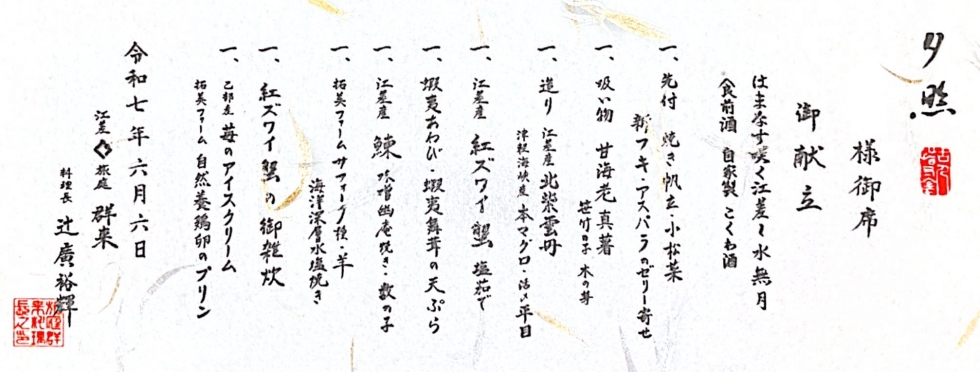 夕照
様御席
御献立
はまなす咲く江差〜水無月
食前酒 自家製 こくわ酒
一、先付 焼き帆立・小松菜
新フキ・アスパラのゼリー寄せ
一、吸い物 甘海老真薯
笹竹の子 木の芽
一、造り 江差産 北紫雲丹
津軽海峡産 本マグロ・活〆平目
一、江差産 紅ズワイ蟹 塩茹で
一、蝦夷あわび・蝦夷舞茸の天ぷら
一、江差産 鰊 味噌幽庵焼き・数の子
一、拓美ファーム サフォーク種・羊
海洋深層水塩焼き
一、紅ズワイ蟹の御雑炊
一、乙部産 苺のアイスクリーム
拓美ファーム 自然養鶏卵のプリン
令和七年 六月六日
江差 旅庭 群来
料理長 辻廣裕輝